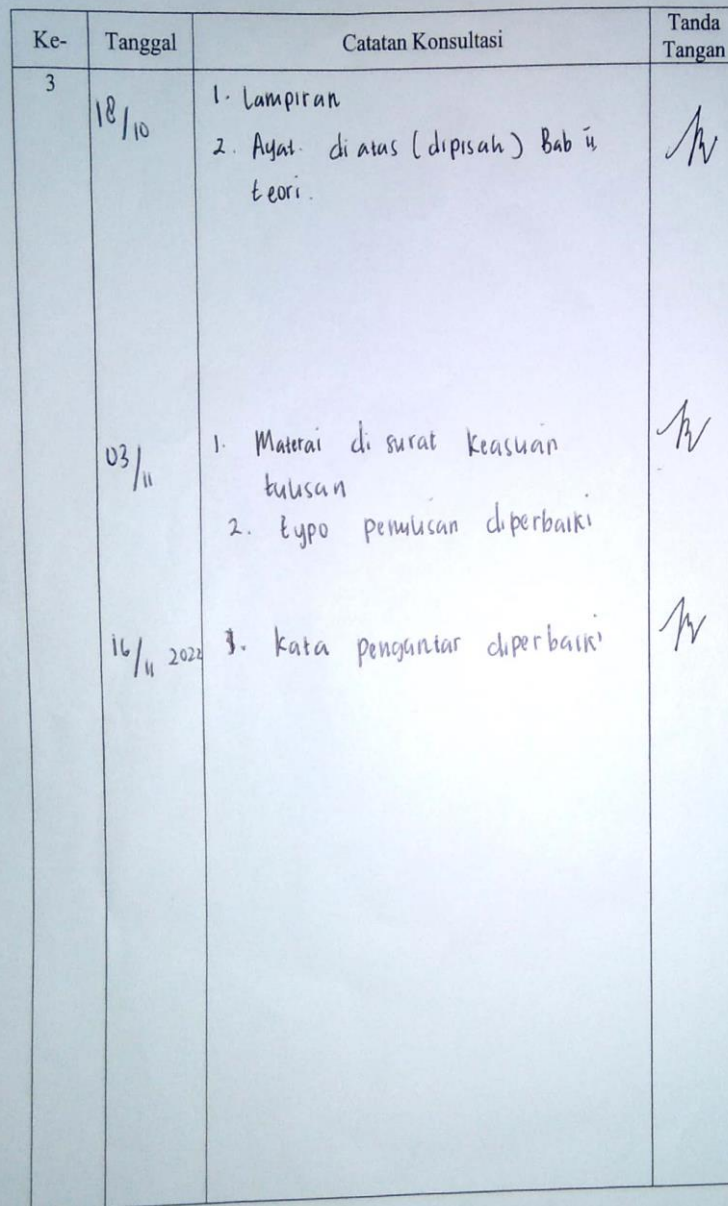 Ke- Tanggal Catatan Konsultasi Tanda Tangan
3
18/10 1. Lampiran
2. Ayat di atas (dipisah) Bab ii
teori.
03/11 1. Materai di surat keasuan
tulisan
2. typo penulisan diperbaiki
16/11 2022 1. Kata pengantar diperbaiki